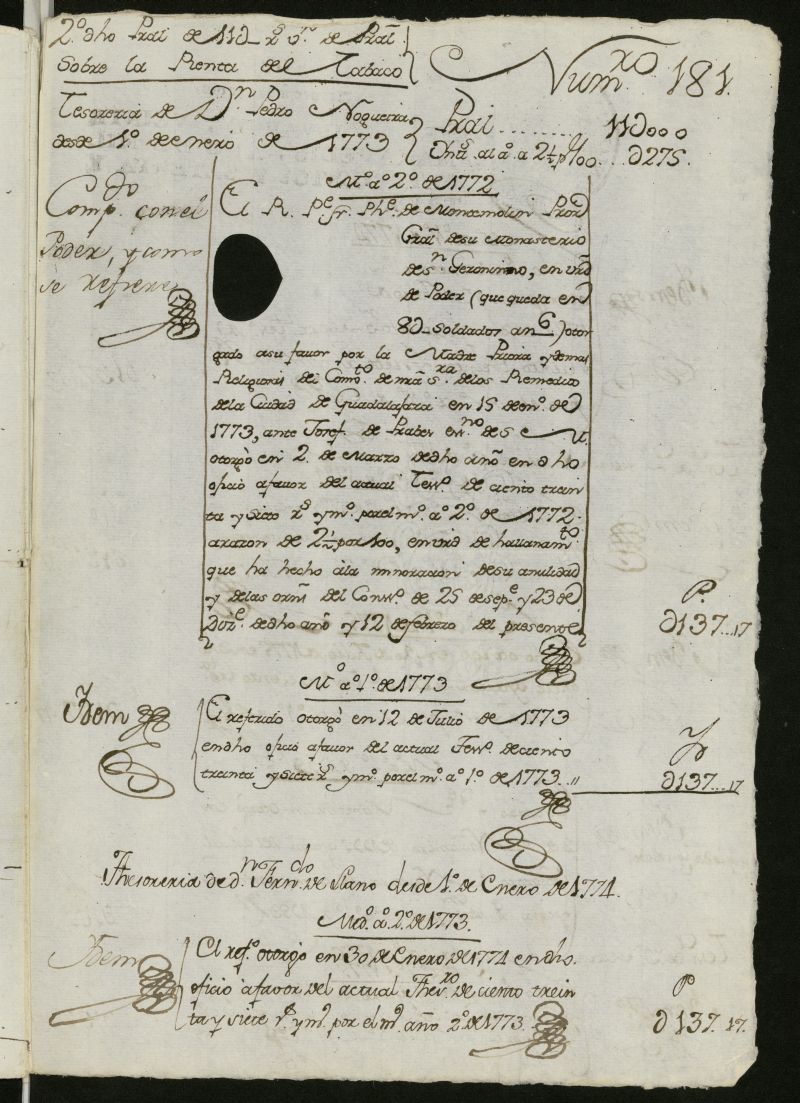 2.º dho Pral de 11D rs vn de Pral
Sobre la Renta del Tabaco
Numro 181.
Tesoreria de Dn Pedro Nogueira
desde 1.º de Enero de 1773
Pral .......... 11D000
al a.º a 2½ p%00... D275.
M.º a.º 2.º de 1772
Compdo con el
Poder, y como
se refiere
El R. Pe fr. Phe. de Monamolin Pror
Gral de su Monasterio
de Sn Geronimo, en vrd
de Poder (que queda en
8D Soldados an 6) otor
gado a su favor por la Madre Priora y demas
Religiosas del Comto de nra Sra de los Remedios
de la Ciudad de Guadalajara en 15 de eno. de
1773, ante Josef de esno de S. M.
otorgó en 2. de Marzo de dho año en dho
oficio a favor del actual Tesro. de ciento trein
ta y siete rs y mo. por el mo. a.º 2.º de 1772.
a razon de 2½ por 100, en vrd de hallanamto
que ha hecho á la minoracion de su anulidad
y de las orns del Consº. de 25 de sepe. y 23 de
Dize. de dho año y 12 de febrero del presente
P.
D137...17
M.º a.º 1.º de 1773
Idem
El referido otorgó en 12 de Julio de 1773
en dho oficio a favor del actual Tesro. de ciento
treinta y siete rs y mo. por el mo. a.º 1.º de 1773..
D137...17
Thesoreria de dn Ferndo de Llano desde 1.º de Enero de 1774.
Med.º a.º 2.º de 1773.
Idem
El refo. otorgó en 30 de Enero de 1774 en dho.
oficio a favor del actual Thesro. de ciento trein
ta y siete rs. y mo. por el mo. año 2.º de 1773.
P
D137. 17.